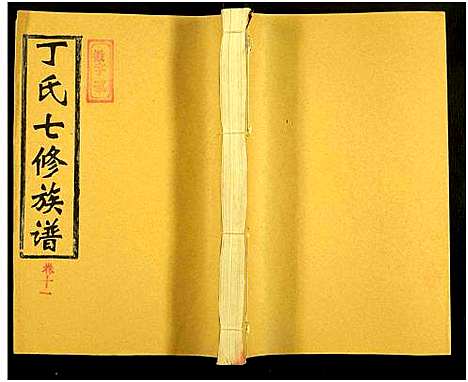 丁氏七修族谱
卷十一